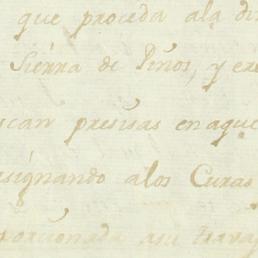 que proceda ala di
Sierra de Pinos, y ere
scan presisas en aque
asignando alos Curas
oporcionada asu traba